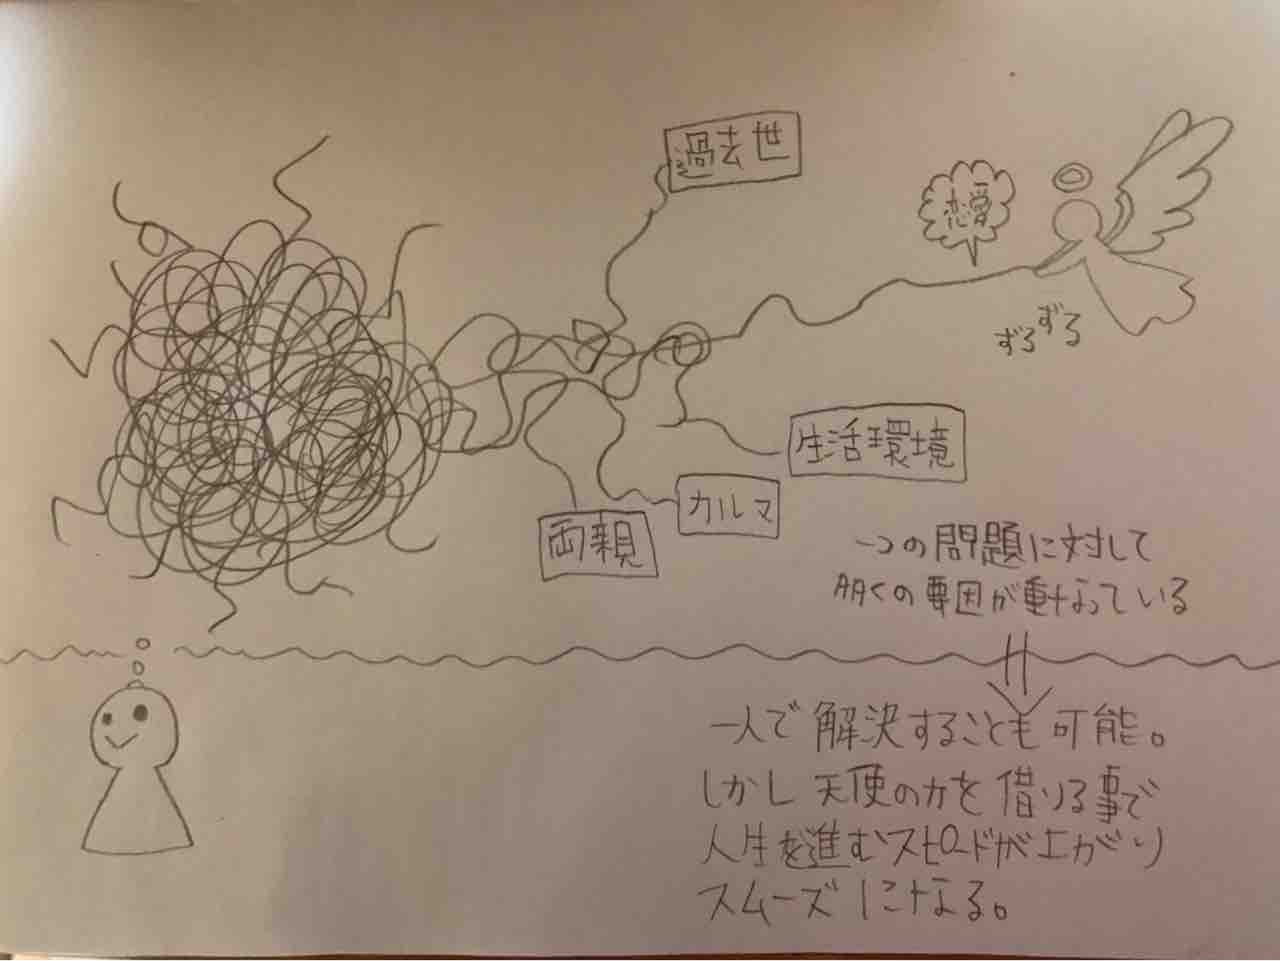 過去世
恋愛
ずるずる
生活環境
カルマ
両親
一つの問題に対して
多くの要因が重なっている
一人で解決することも可能。
しかし天使の力を借りる事で
人生を進むスピードが上がり
スムーズになる。